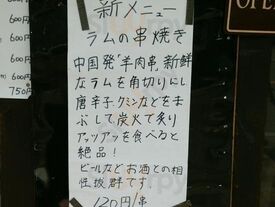 新メニュー
ラムの串焼き
中国発「羊肉串」新鮮
なラムを角切りにし
唐辛子・クミンなどをま
ぶして炭火で炙り
アッツアッを食べると
絶品！
ビールなどお酒との相
性抜群です
120円/串
600円
600円
600円
750円
OPEN